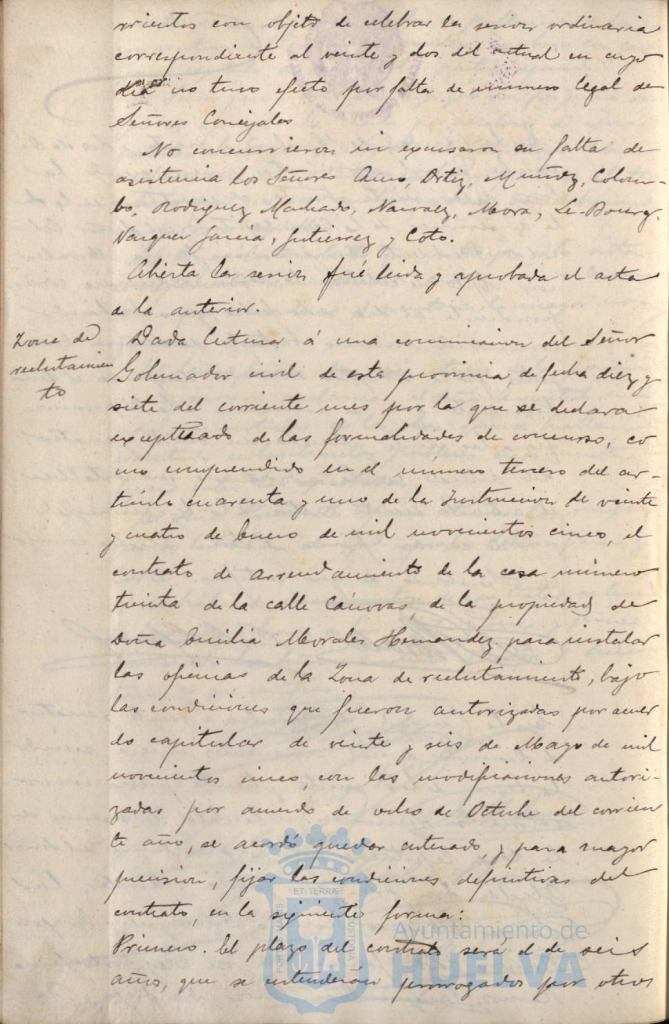 rrientes con objeto de celebrar la sesion ordinaria
correspondiente al veinte y dos del actual en cuyo
dia no tuvo efecto por falta de número legal de
Señores Concejales
No concurrieron ni excusaron su falta de
asistencia los Señores Ortiz, Muñoz, Colom-
bo, Rodriguez Machado, Narvaez, Mora, Le-Bourg,
Vazquez Garcia, Gutierrez y Coto.
Abierta la sesion fué leida y aprobada el acta
de la anterior.
Zona de
reclutamien
to
Dada lectura á una comunicacion del Señor
Gobernador civil de esta provincia, de fecha diez y
siete del corriente mes por la que se declara
exceptuado de las formalidades de concurso, co
mo comprendido en el número tercero del ar-
tículo cuarenta y uno de la Instruccion de veinte
y cuatro de Enero de mil novecientos cinco, el
contrato de arrendamiento de la casa número
treinta de la calle Cánovas, de la propiedad de
Doña Emilia Morales Hernandez para instalar
las oficinas de la Zona de reclutamiento, bajo
las condiciones que fueron autorizadas por acuer
do capitular de veinte y seis de Mayo de mil
novecientos cinco, con las modificaciones autori-
zadas por acuerdo de ocho de Octubre del corrien
te año, se acordó quedar enterado, y para mayor
precision, fijar las condiciones definitivas del
contrato, en la siguiente forma:
Primero. El plazo del contrato será el de seis
años, que se entenderán prorrogados por otros
Ayuntamiento de
HUELVA